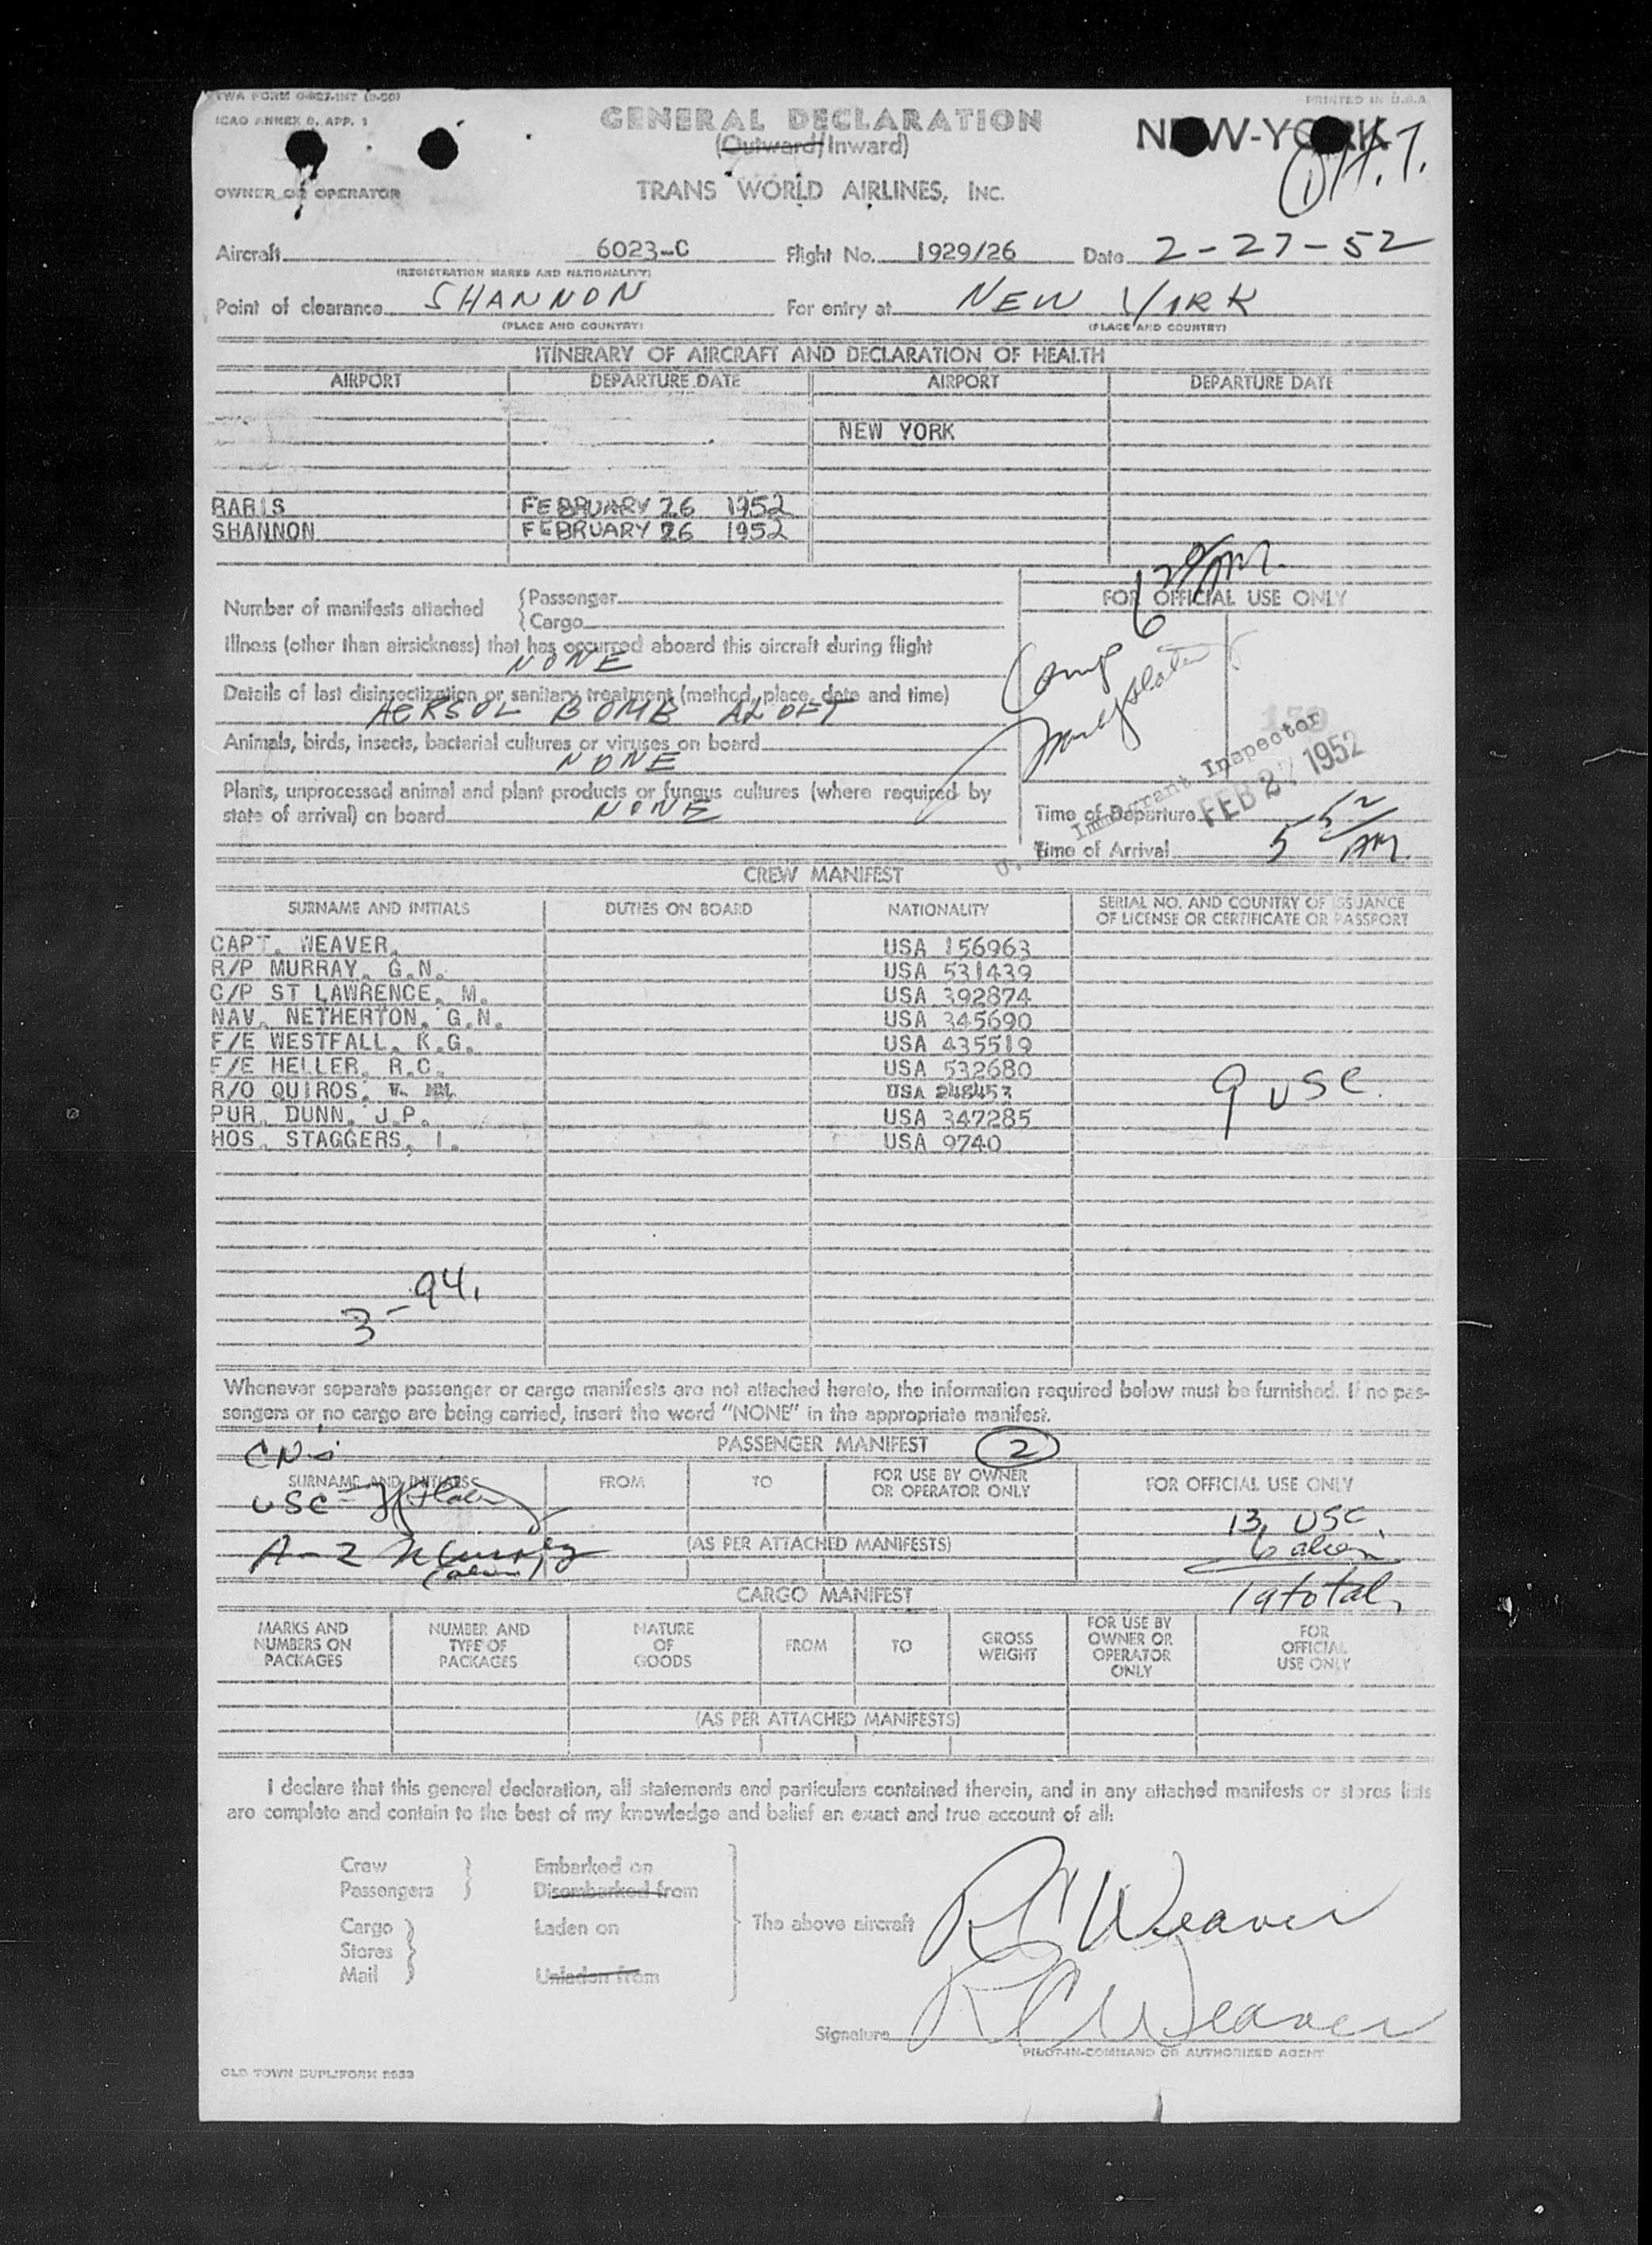 TWA FORM 0-827-INT (9-50)
PRINTED IN U.S.A.
ICAO ANNEX 9, APP. 1
GENERAL DECLARATION
(Outward/Inward)
NEW-YORK
OWNER OR OPERATOR
TRANS WORLD AIRLINES, INC.
Aircraft 6023-C Flight No. 1929/26 Date 2-27-52
(REGISTRATION MARKS AND NATIONALITY)
Point of clearance SHANNON For entry at NEW YORK
(PLACE AND COUNTRY) (PLACE AND COUNTRY)
ITINERARY OF AIRCRAFT AND DECLARATION OF HEALTH
AIRPORT DEPARTURE DATE AIRPORT DEPARTURE DATE
NEW YORK
RARIS FEBRUARY 26 1952
SHANNON FEBRUARY 26 1952
Number of manifests attached {Passenger
{Cargo
FOR OFFICIAL USE ONLY
Illness (other than airsickness) that has occurred aboard this aircraft during flight
NONE
Details of last disinsectization or sanitary treatment (method, place, date and time)
AERSOL BOMB ALOFT
Animals, birds, insects, bacterial cultures or viruses on board
NONE
Plants, unprocessed animal and plant products or fungus cultures (where required by
state of arrival) on board NONE
Immigrant Inspector
FEB 27 1952
Time of Departure
Time of Arrival 5 52 AM
CREW MANIFEST
SURNAME AND INITIALS DUTIES ON BOARD NATIONALITY SERIAL NO. AND COUNTRY OF ISSUANCE
OF LICENSE OR CERTIFICATE OR PASSPORT
CAPT. WEAVER. USA 156963
R/P MURRAY, G.N. USA 531439
C/P ST LAWRENCE, M. USA 392874
NAV. NETHERTON, G.N. USA 345690
F/E WESTFALL, K.G. USA 435519
F/E HELLER, R.C. USA 532680
R/O QUIROS, W. USA 248453
9 USC.
PUR. DUNN, J.P. USA 347285
HOS. STAGGERS, I. USA 9740
3-94.
Whenever separate passenger or cargo manifests are not attached hereto, the information required below must be furnished. If no pas-
sengers or no cargo are being carried, insert the word "NONE" in the appropriate manifest.
PASSENGER MANIFEST 2
SURNAME AND INITIALS FROM TO FOR USE BY OWNER
OR OPERATOR ONLY FOR OFFICIAL USE ONLY
USC
13 USC
(AS PER ATTACHED MANIFESTS)
6 alien
19 total
CARGO MANIFEST
MARKS AND
NUMBERS ON
PACKAGES
NUMBER AND
TYPE OF
PACKAGES
NATURE
OF
GOODS
FROM
TO
GROSS
WEIGHT
FOR USE BY
OWNER OR
OPERATOR
ONLY
FOR
OFFICIAL
USE ONLY
(AS PER ATTACHED MANIFESTS)
I declare that this general declaration, all statements and particulars contained therein, and in any attached manifests or stores lists
are complete and contain to the best of my knowledge and belief an exact and true account of all:
Crew } Embarked on
Passengers } Disembarked from
Cargo } Laden on
Stores }
Mail } Unladen from
The above aircraft R C Weaver
Signature R C Weaver
PILOT-IN-COMMAND OR AUTHORIZED AGENT
OLD TOWN DUPLIFORM